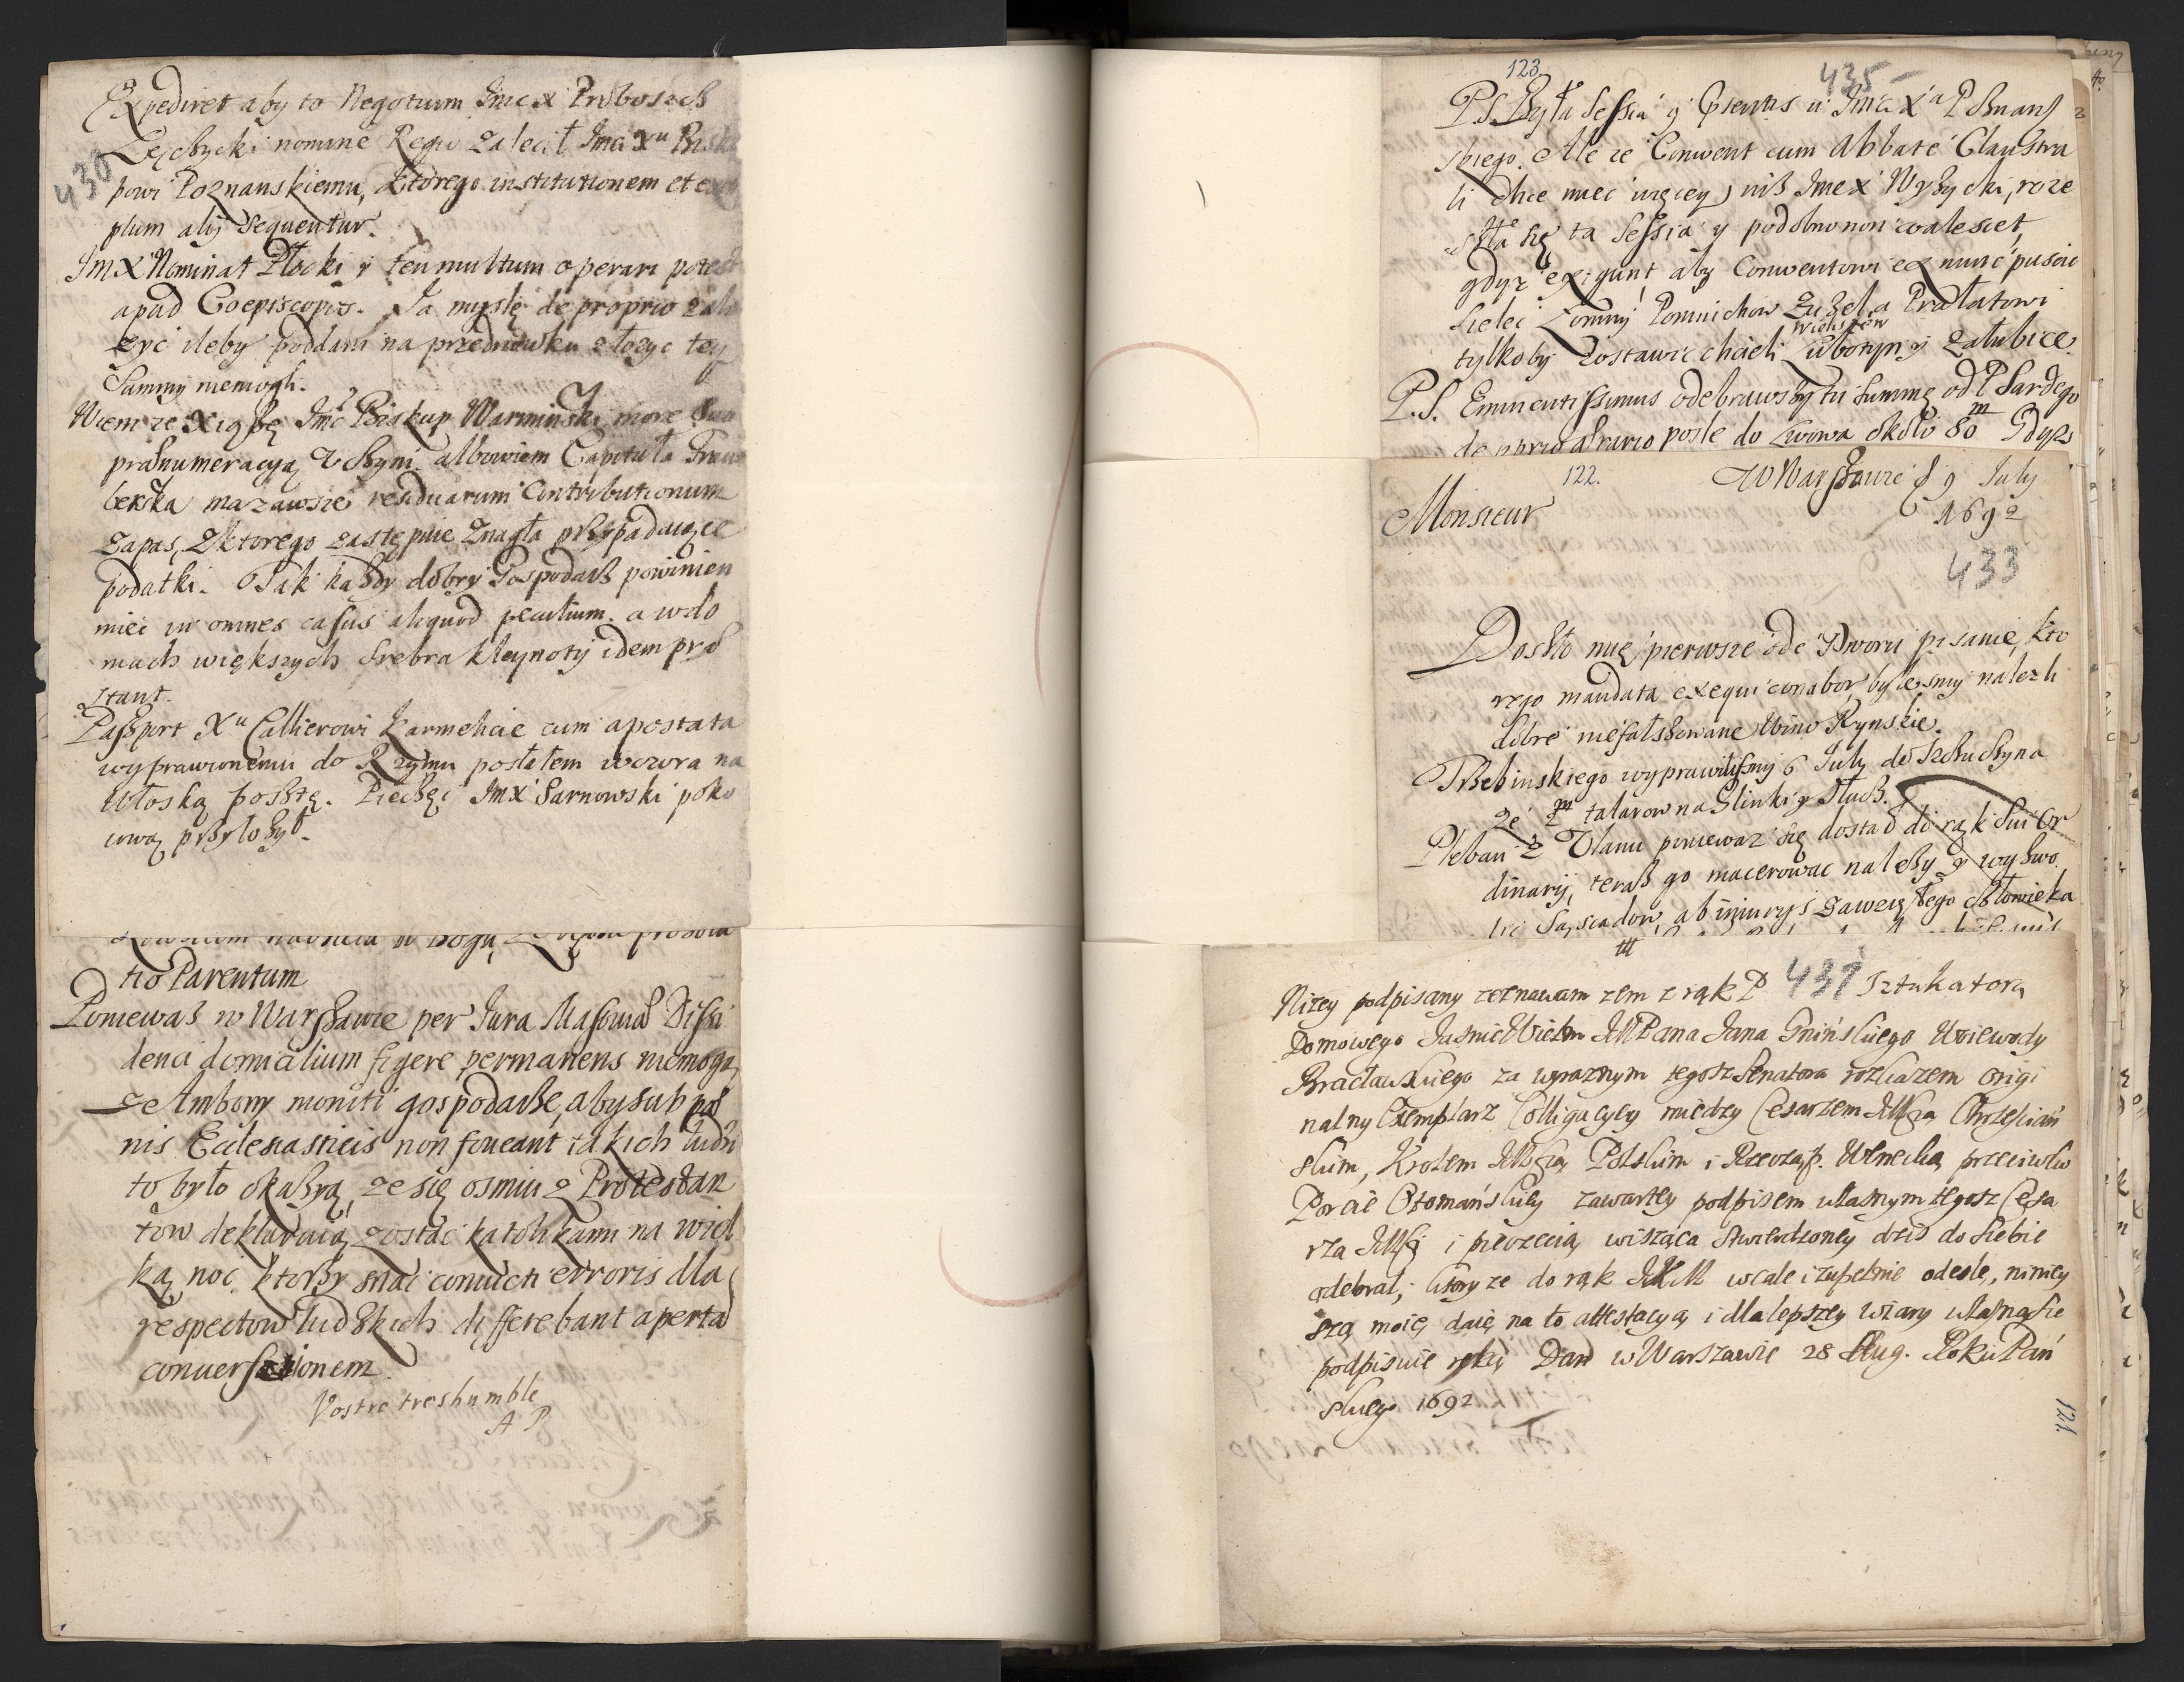 Expediret aby to Negotium Jmc X Proboszcz
Łęczycki nomine Regio zalecił Jmci Xu Bisku
430
powi Poznanskiemu, ktorego institutionem et ex
plum alij sequentur.
Jm X Nominat Płocki y ten multum operari potest
apud Coepiscopos. Ja myslę de proprio zało
zyc ileby poddani na przednowku złozyc tey
Summy niemogli.
Wiem ze Xiąże Jmc Biskup Warminski more suo
prænumeracyą uczyni albowiem Capituła Frau
berska ma zawsze residuarum Contributionum
zapas, z ktorego zastępuie znagła przypadaiące
podatki. Tak kazdy dobry Gospodarz powinien
miec in omnes casus aliquod peculium, a w do
mach większych srebra kleynoty idem præ
stant.
Paszport Xu Callierowi Karmelicie cum apostata
wyprawionemu do Rzymu posłałem wczora na
Włoską posztę. Pieczęc JmX Sarnowski poko
iową przyłozył.
tio Parentum
Poniewasz w Warszawie per Jura Masoviæ Dissi
denci domicilium figere permanens niemogą
ze Ambony moniti gospodarze, aby sub pœ
nis Ecclesiasticis non foveant takich ludzi
to było okazyą, ze się osmiu z Protestan
tow deklaruią zostac katolikami na wiel
ką noc, ktorzy snac convicti erroris dla
respectow ludzkich differebant aperta
conversionem.
Vostre tres humble
A P
123
435
P.S. Była Sessia y Conventus u Jmci Xa Poznans
skiego. Ale ze Convent cum Abbate Claustra
li chce miec więcey, nisz Jmc X Wyzycki, roze
szła się ta Sessia y podobno non valescet,
gdyz exigunt, aby Conventowi ex nunc puscic
Sielec Łomny Pomnichow Zuzel a Prałatowi
Wieliszew
tylko by zostawic chcieli Lubotyn y Załubice.
P.S. Eminentissimus odebrawszy tu summę od P Sardego
de pprio ærario posle do Lwowa około 80 m Gdysz
122.
W Warszawie d 9 July
1692
Monsieur
433
Doszło mię pierwsze ode Dworu pisanie, kto
rego mandata exequi conabor, bylesmy nalezli
dobre niefałszowane Wino Rynskie.
Trzebinskiego wyprawilismy 6 July do Szczuczyna
ze 2 m talarow na Glinki y Słucz.
Pleban z Ulanu poniewaz się dostał do rąk sui Or
dinarij, terasz go macerowac nalezy y wyzwo
lic Sąsiadow, ab iniurijs zawziętego człowieka
431
Nizey podpisany zeznawam zem z rąk P Sztukatora
Domowego Jasnie Wielm JMPana Jana Gninskiego Woiewody
Bracławskiego za wyraznym tegosz Senatora rozkazem origi
nalny Exemplarz Colligacyey między Cesarzem JMcią Chrzescian
skim, Krolem JMcią Polskim i Rzecząp. Wenecką przeciwko
Porcie Otomanskiey zawartey podpisem własnym tegosz Cesa
rza JMci i pieczęcią wiszącą stwierdzoney dzis do siebie
odebrał; ktory ze do rąk JKM wcale i zupełnie odesle, niniey
szą moię daię na to attestacyą i dla lepszey wiary własną się
podpisuię ręką Dan w Warszawie 28 Aug. Roku Pań
skiego 1692
121.